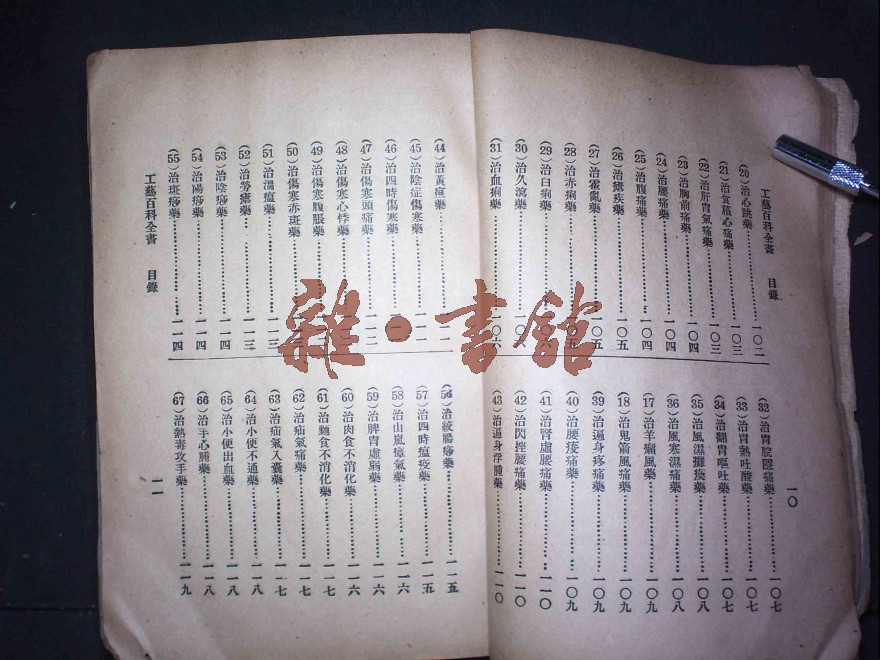 工藝百科全書　目錄
一〇
(20)治心跳藥……一〇二
(21)治食積心痛藥……一〇三
(22)治肝胃氣痛藥……一〇三
(23)治胸前痛藥……一〇四
(24)治腰痛藥……一〇四
(25)治腹痛藥……一〇四
(26)治瘧疾藥……一〇五
(27)治霍亂藥……一〇五
(28)治赤痢藥
(29)治白痢藥
(30)治久瀉藥
(31)治血痢藥……一〇六
(32)治胃脘隱痛藥……一〇七
(33)治胃熱吐酸藥……一〇七
(34)治翻胃嘔吐藥……一〇七
(35)治風濕攤痰藥……一〇八
(36)治風寒濕痛藥……一〇八
(17)治羊癲風藥……一〇九
(18)治鬼箭風痛藥……一〇九
(39)治遍身疼痛藥……一〇九
(40)治腰痠痛藥……一〇九
(41)治腎虛腰痛藥……一一〇
(42)治閃挫腰痛藥……一一〇
(43)治遍身浮腫藥……一一〇
(44)治黃疸藥
(45)治陰症傷寒藥
(46)治四時傷寒藥
(47)治傷寒頭痛藥……一一二
(48)治傷寒心悸藥
(49)治傷寒腹脹藥
(50)治傷寒赤斑藥
(51)治溫瘟藥……一一三
(52)治勞瘧藥……一一三
(53)治陰痧藥……一一四
(54)治陽痧藥……一一四
(55)治斑痧藥……一一四
(56)治絞腸痧藥……一一五
(57)治四時瘟疫藥……一一五
(58)治山嵐瘴氣藥……一一六
(59)治脾胃虛弱藥……一一六
(60)治肉食不消化藥……一一六
(61)治麵食不消化藥……一一七
(62)治疝氣痛藥……一一七
(63)治疝氣入囊藥……一一七
(64)治小便不通藥……一一八
(65)治小便出血藥……一一八
(66)治手心腫藥……一一八
(67)治熱毒攻手藥……一一九
工藝百科全書　目錄
一一
雜·書館